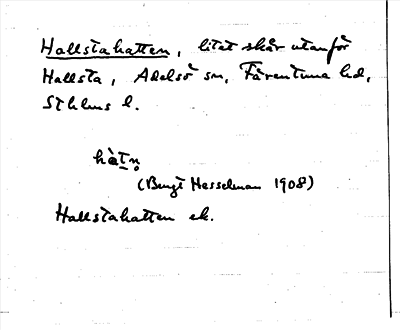 Hallstahatten, litet skär utanför
Hallsta, Adelsö sn, Färentuna hd,
Sthlms l.
hàtn̥
(Bengt Hesselman 1908)
Hallstahatten ek.